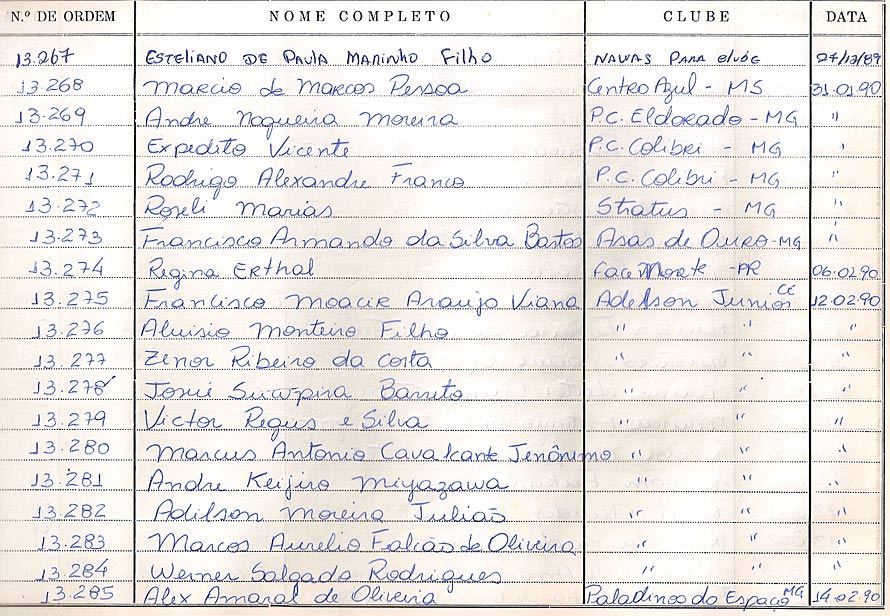 N.º DE ORDEM NOME COMPLETO CLUBE DATA
13.267 ESTELIANO DE PAULA MARINHO Filho NAVAS PARA 27/12/89
13.268 Marcio de Marcos Pessoa Centro Azul - MS 31.01.90
13.269 Andre Nogueira Moreira P.C. Eldorado - MG "
13.270 Expedito Vicente P.C. Colibri - MG "
13.271 Rodrigo Alexandre Franco P.C. Colibri - MG "
13.272 Roseli Marias Stratus - MG "
13.273 Francisco Armando da Silva Bastos Asas de Ouro - MG "
13.274 Regina Erthal Face Morte - PR 06.02.90
13.275 Francisco Moacir Araujo Viana Adelson Junior CE 12.02.90
13.276 Aluisio Monteiro Filho " " "
13.277 Zenor Ribeiro da Costa " " "
13.278 Josué Barreto " " "
13.279 Victor Regus e Silva " " "
13.280 Marcus Antonio Cavalcante Jenônimo " " "
13.281 Andre Keijiro Miyazawa " " "
13.282 Adilson Moreira Julião " " "
13.283 Marcos Aurelio Falcão de Oliveira " " "
13.284 Werner Salgado Rodrigues " " "
13.285 Alex Amaral de Oliveira Paladinos do Espaço MG 14.02.90